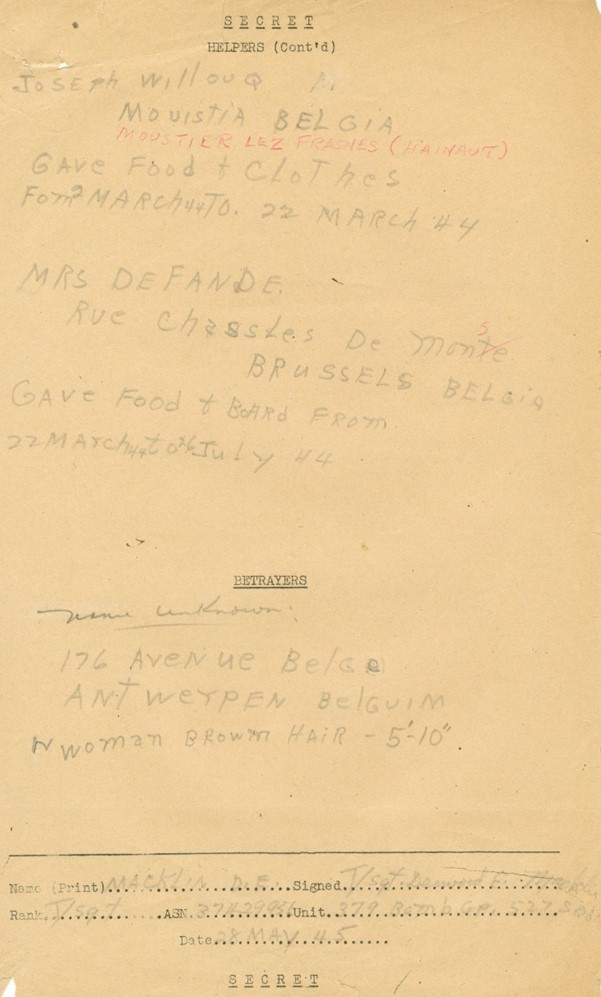 SECRET
HELPERS (Cont'd)
JOSEPH WILLOUQ
MOUISTIA BELGIA
MOUSTIER LEZ FRASNES (HAINAUT)
GAVE FOOD + CLOTHES
MARCH 44 TO. 22 MARCH 44
MRS DEFANDE.
RUE Chassles De Monte
S
BRUSSELS BELGIA
GAVE FOOD + BOARD FROM
22 MARCH 44 to 26 July 44
BETRAYERS
name unknown:
176 AVENUE Belge
ANTWERPEN BELGUIM
WOMAN BROWN HAIR - 5'-10".
Name (Print) MACKLIN D.E. Signed T/Sgt
Rank T/Sgt ASN Unit 379 Bomb GP. 527
Date 28 MAY 45
SECRET